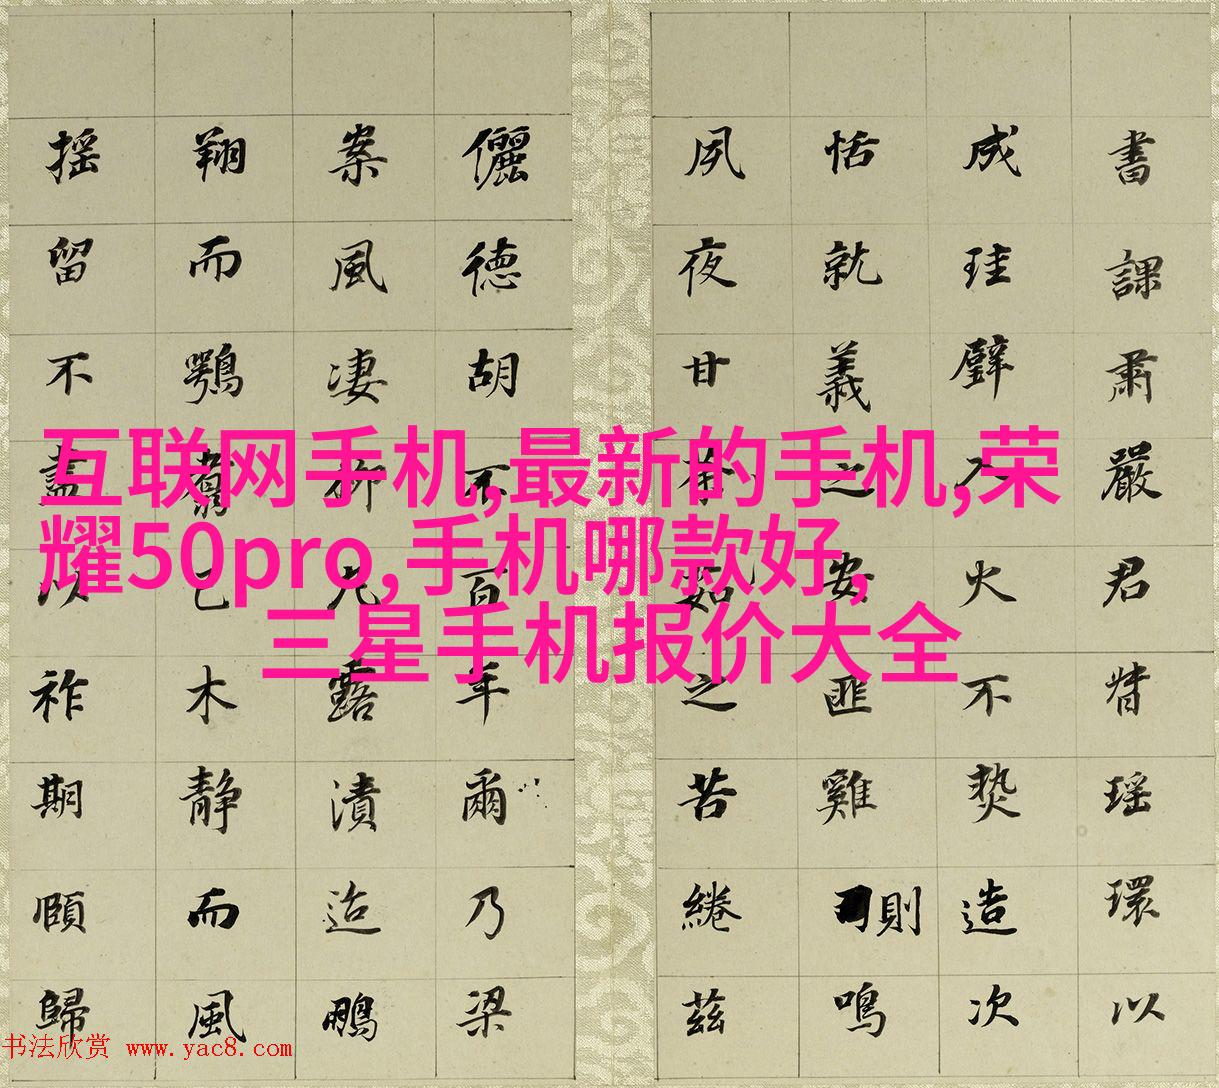 互联网手机,最新的手机,荣
耀50pro,手机哪款好,
三星手机报价大全
書課肅嚴君瑶環以
成珪璧入火不爇造次
恬就義之安匪雞則鳴
夙夜甘荼如之苦綣茲
儷德胡不百年爾乃梁
案風凄露漬迨鵬
翔而鶚已木靜而風
搖留不盡以祚期頤歸
书法欣赏 www.yac8.com